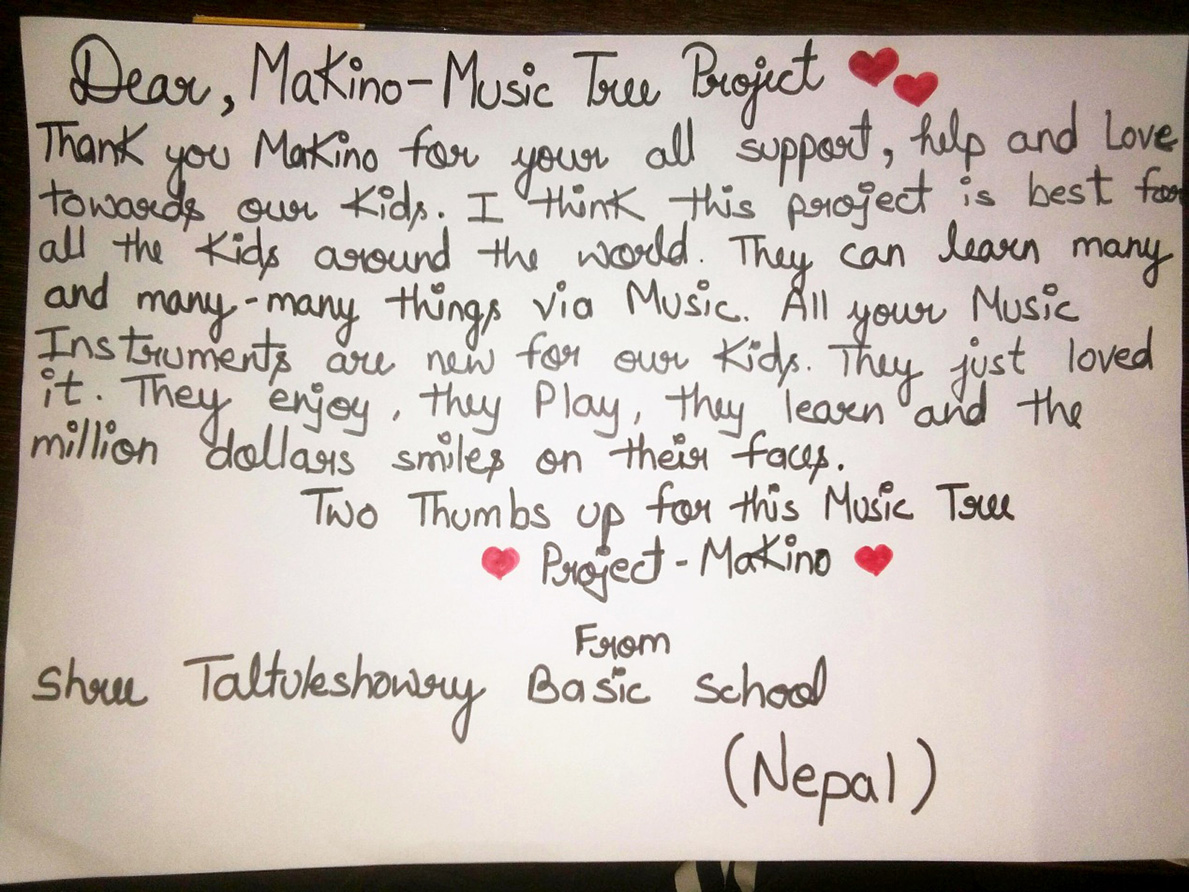 Dear, Makino-Music Tree Project
Thank you Makino for your all support, help and Love
towards our Kids. I think this project is best for
all the Kids around the world. They can learn many
and many-many things via Music. All your Music
Instruments are new for our Kids. They just loved
it. They enjoy, they Play, they learn and the
million dollars smiles on their faces.
Two Thumbs up for this Music Tree
Project - Makino
From
Shree Taltuleshowry Basic School
(Nepal)